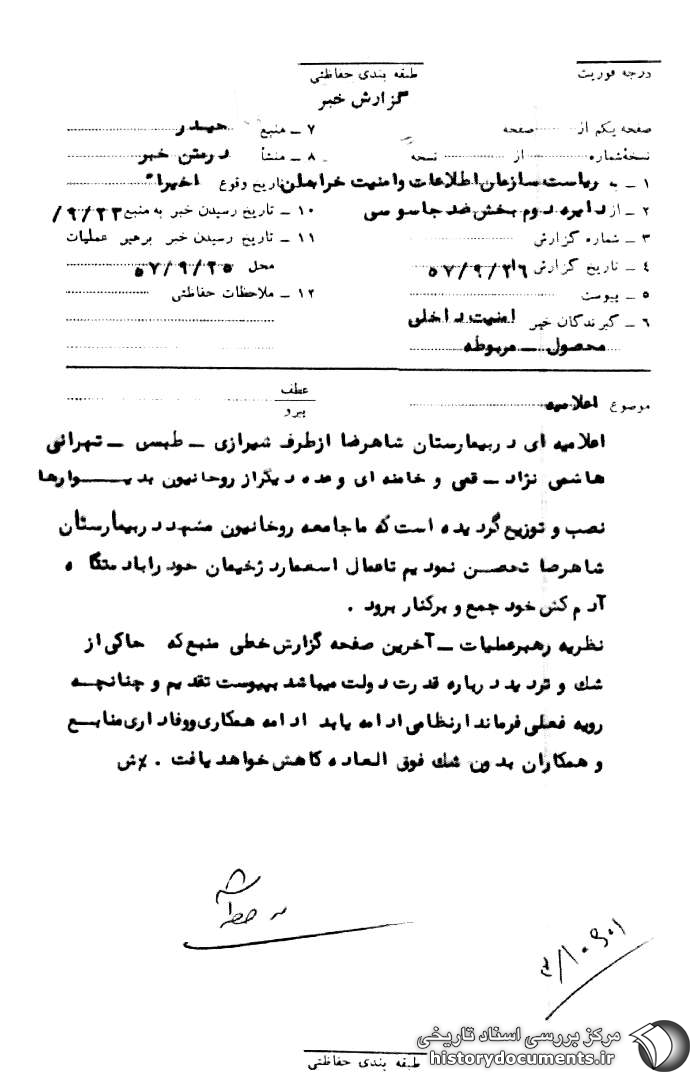 طبقه بندی حفاظتی
درجه فوریت
گزارش خبر
صفحه یکم از صفحه
نسخه شماره از نسخه
۱ ــ به ریاست سازمان اطلاعات و امنیت خراسان
۲ ــ از دایره دوم بخش ضد جاسوسی
۳ ــ شماره گزارش
۴ ــ تاریخ گزارش ۵۷/۹/۲۶
۵ ــ پیوست
۶ ــ گیرندگان خبر امنیت داخلی
محصول ــ مربوطه
۷ ــ منبع حیدر
۸ ــ منشأ درمتن خبر
تاریخ وقوع اخیرا"
۱۰ ــ تاریخ رسیدن خبر به منبع ۹/۲۳/
۱۱ ــ تاریخ رسیدن خبر برهبر عملیات
محل ۵۷/۹/۲۵
۱۲ ــ ملاحظات حفاظتی
موضوع اعلامیه
عطف
پیرو
اعلامیه ای در بیمارستان شاهرضا ازطرف شیرازی ــ طبسی ــ تهرانی
هاشمی نژاد ــ قمی و خامنه ای و عده دیگر از روحانیون بدیــوارها
نصب و توزیع گردیده است که ما جامعه روحانیون مشهد در بیمارستان
شاهرضا تحصن نمودیم تا عمال استعمار دژخیمان خود را با دستگاه
آدم کش خود جمع و برکنار برود .
نظریه رهبرعملیات ــ آخرین صفحه گزارش خطی منبع که حاکی از
شك و تردید درباره قدرت دولت میباشد بپیوست تقدیم و چنانچه
رویه فعلی فرماندار نظامی ادامه یابد ادامه همکاری و وفاداری منابع
و همکاران بدون شك فوق العاده کاهش خواهد یافت . %ش
مرکز بررسی اسناد تاریخی
historydocuments.ir
طبقه بندی حفاظتی